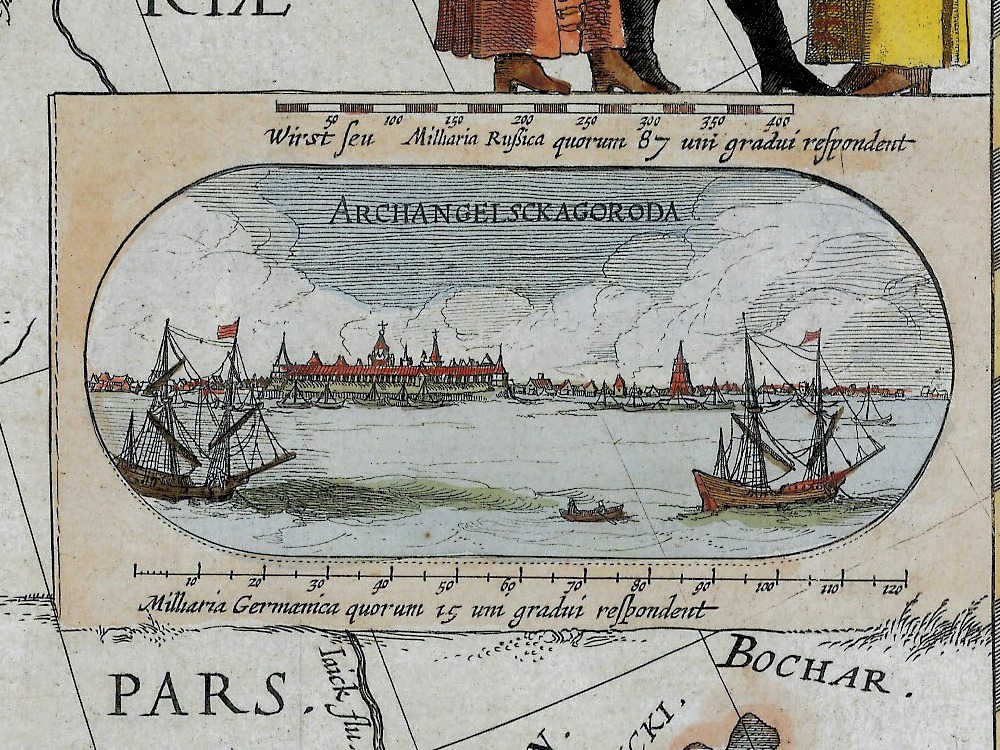 RIÆ
50 100 150 200 250 300 350 400
Wirst ſeu Milliaria Ruſsica quorum 87 uni gradui reſpondent
ARCHANGELSCKAGORODA
10 20 30 40 50 60 70 80 90 100 110 120
Milliaria Germanica quorum 15 uni gradui reſpondent
BOCHAR.
PARS.
Iaick flu.
N.
CKI.